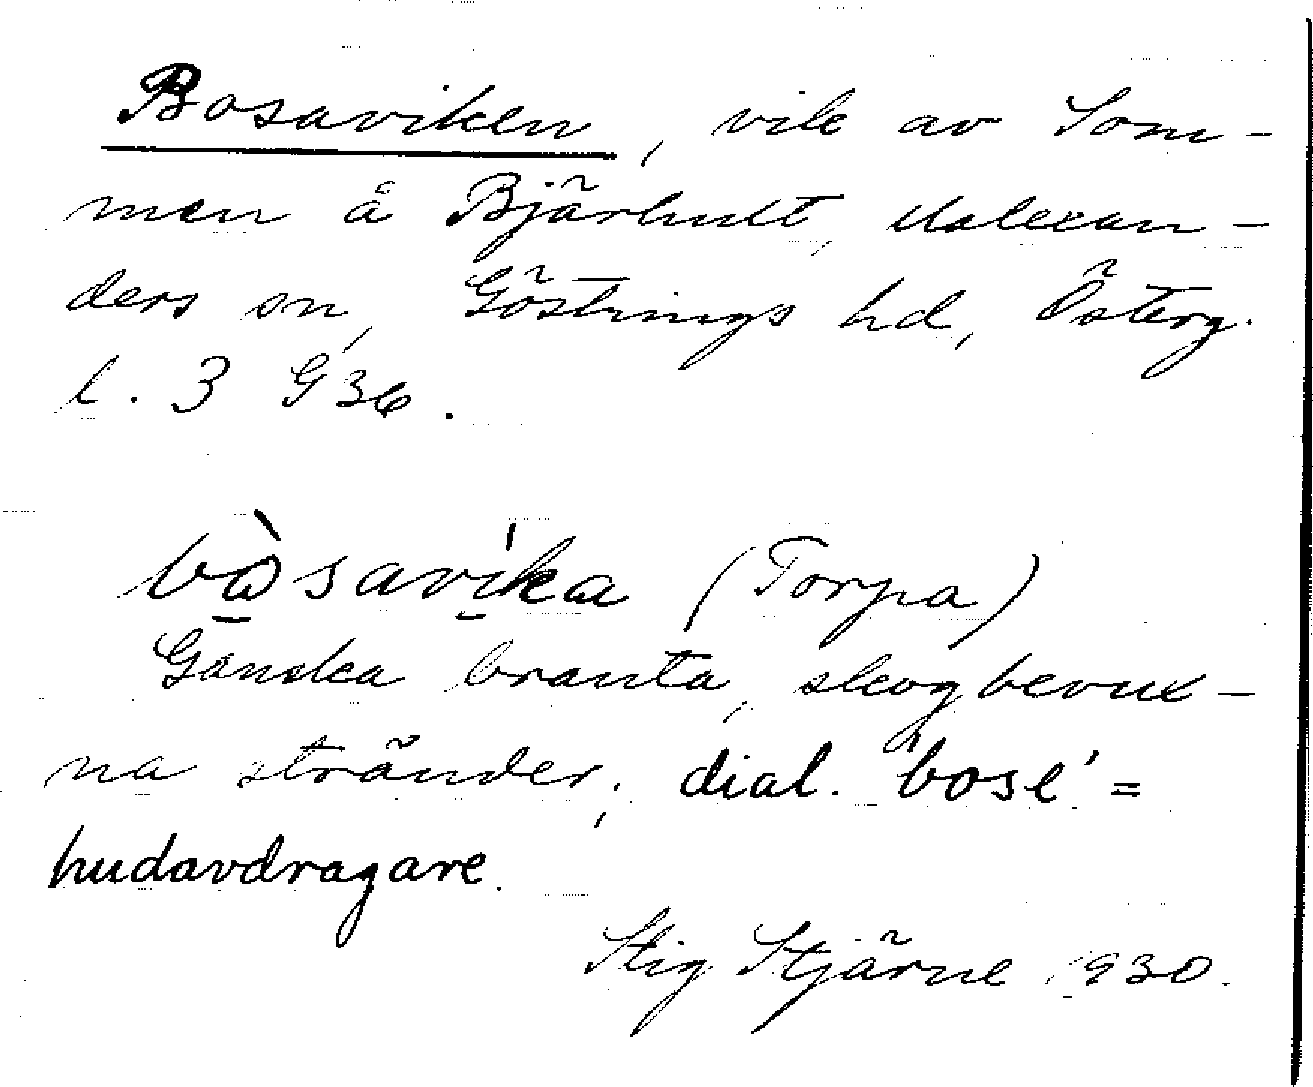 Bosaviken, vik av Som-
men å Bjärhult, Malexan-
ders sn, Göstrings hd, Österg.
l. 3 G36.
bòsavika (Torpa)
Ganska branta, skogbevux-
na stränder; dial. 'bose' =
hudavdragare.
Stig Stjärne 1930.